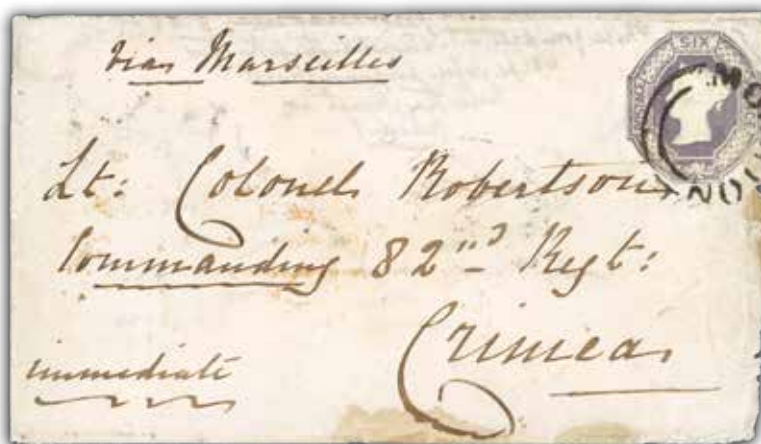 via Marseilles
SIX
Lt: Colonel Robertson
Commanding 82nd Regt:
Crimea
immediate